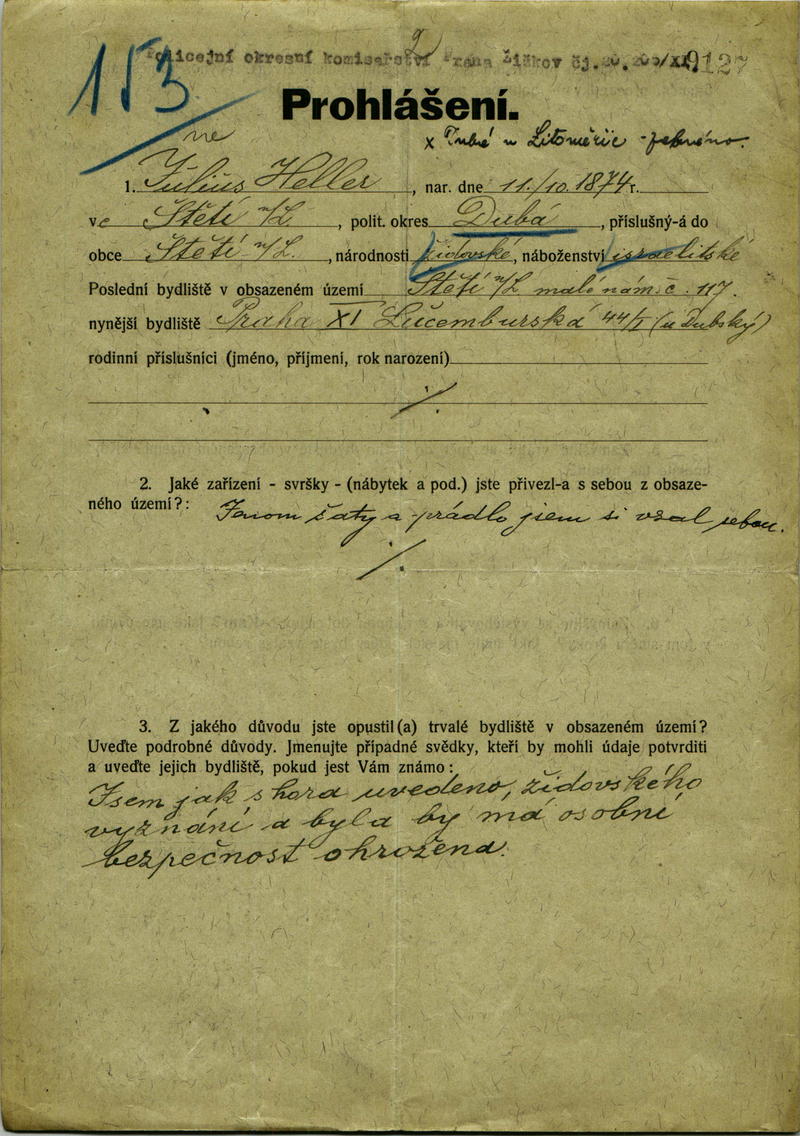 Policejní okresní komisařství Praha Žižkov čj.
2
9127
153
Prohlášení.
ne
x u Litoměřic
1. Julius Heller, nar. dne 11./10. 1874 r.
ve Štětí n/L., polit. okres Dubá, příslušný-á do
obce Štětí n/L., národnosti židovské, náboženství israelitské
Poslední bydliště v obsazeném území Štětí n/L malé nám. č. 117.
nynější bydliště Praha XI Lucemburská 44/I (u Dubský)
rodinní příslušníci (jméno, příjmení, rok narození)
./.
2. Jaké zařízení - svršky - (nábytek a pod.) jste přivezl-a s sebou z obsaze-
ného území?: Jenom šaty a prádlo jsem si vzal sebou.
./.
3. Z jakého důvodu jste opustil(a) trvalé bydliště v obsazeném území?
Uveďte podrobné důvody. Jmenujte případné svědky, kteří by mohli údaje potvrditi
a uveďte jejich bydliště, pokud jest Vám známo:
Jsem jak s hora uvedeno, židovského
vyznání a byla by má osobní
bezpečnost ohrožena.